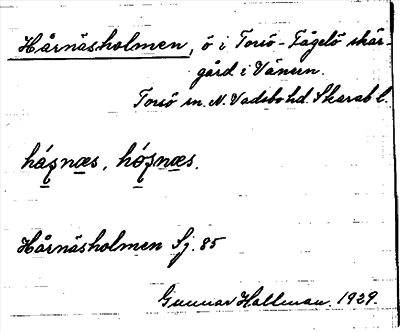 Hårnäsholmen, ö i Torsö-Fågelö skär-
gård i Vänern.
Torsö sn. N. Vadsbo hd. Skarab l.
håʂnæs, hóʂnæs.
Hårnäsholmen Sj. 85
Gunnar Hallman. 1929.